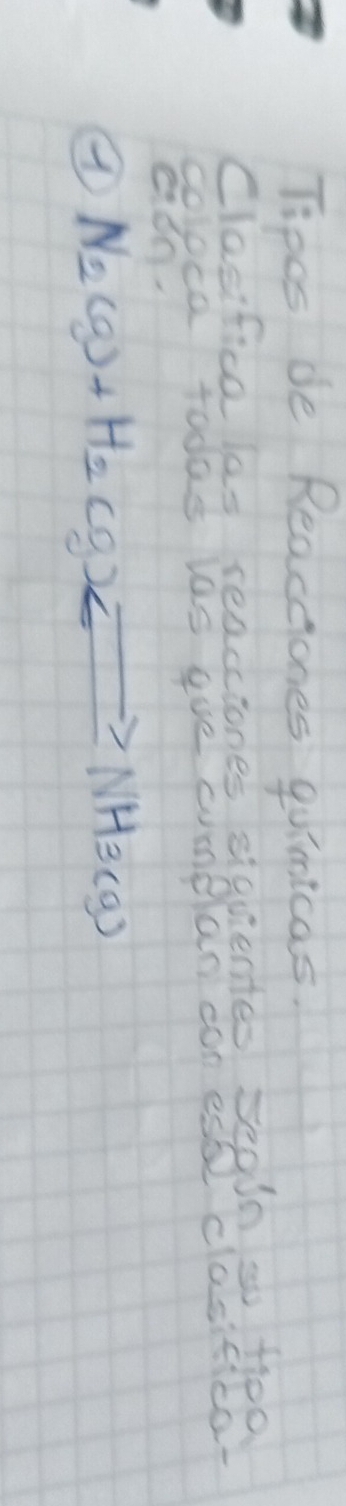 Tipos de Reacciones químicas.
Clasifica las reacciones siguientes según su tipo
coloca todas las que cumplan con esa clasifica-
ción.
① N₂(g) + H₂(g) ⇄ NH₃(g)